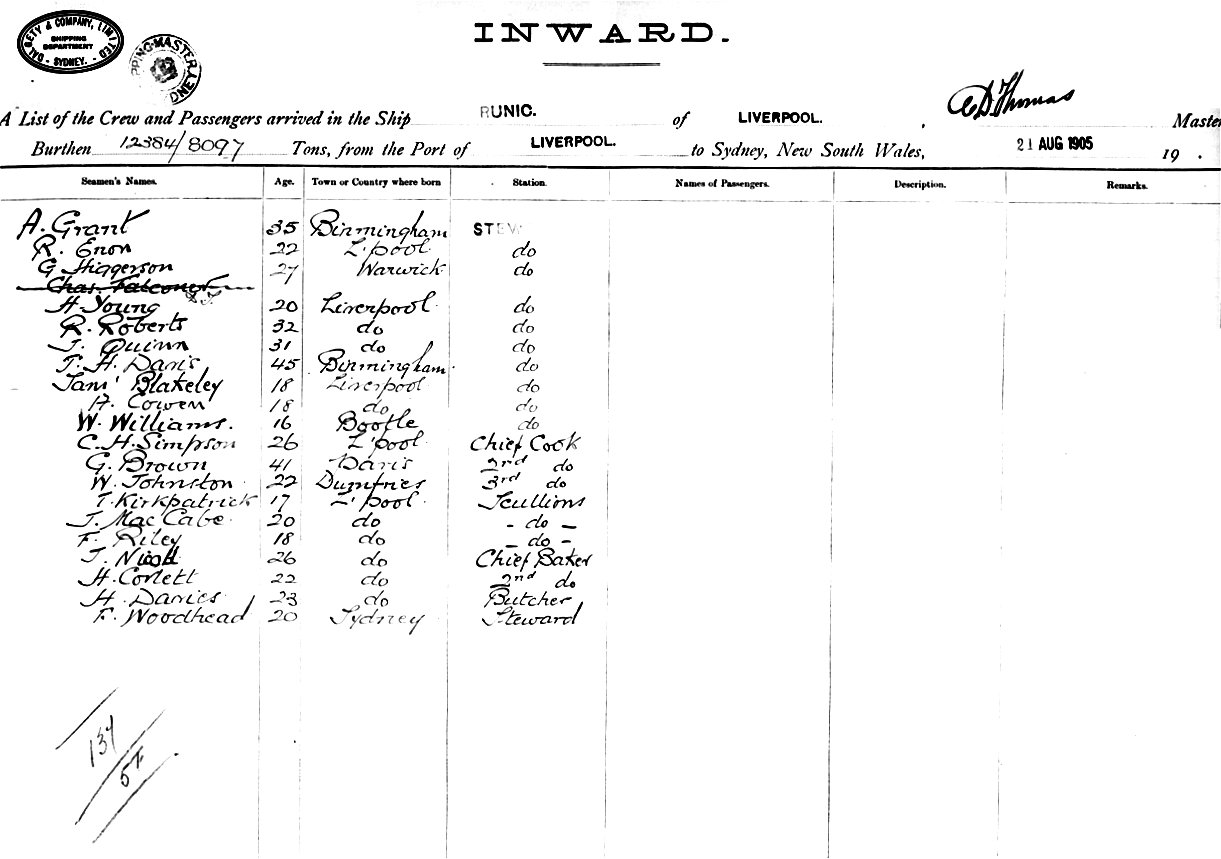 DALGETY & COMPANY, LIMITED
SHIPPING
DEPARTMENT
- SYDNEY. -
SHIPPING MASTER SYDNEY
INWARD.
A List of the Crew and Passengers arrived in the Ship RUNIC. of LIVERPOOL. , A D Thomas Master
Burthen 12384/8097 Tons, from the Port of LIVERPOOL. to Sydney, New South Wales, 21 AUG 1905 19 .
Seamen's Names. Age. Town or Country where born Station. Names of Passengers. Description. Remarks.
A. Grant 35 Birmingham STEW
R. Enon 22 L'pool do
G Higgerson 27 Warwick do
Chas. Falconer
H. Young 20 Liverpool do
R. Roberts 32 do do
J. Quinn 31 do do
T. H. Davis 45 Birmingham do
Sam' Blakeley 18 Liverpool do
A. Cowen 18 do do
W. Williams. 16 Bootle do
C. H. Simpson 26 L'pool Chief Cook
G. Brown 41 Paris 2nd do
W. Johnston 22 Dumfries 3rd do
T. Kirkpatrick 17 L'pool Scullions
J. MacCabe 20 do - do -
F. Riley 18 do - do -
J. 26 do Chief Baker
H. Corlett 22 do 2nd do
H. Davies 23 do Butcher
F. Woodhead 20 Sydney Steward
134
57